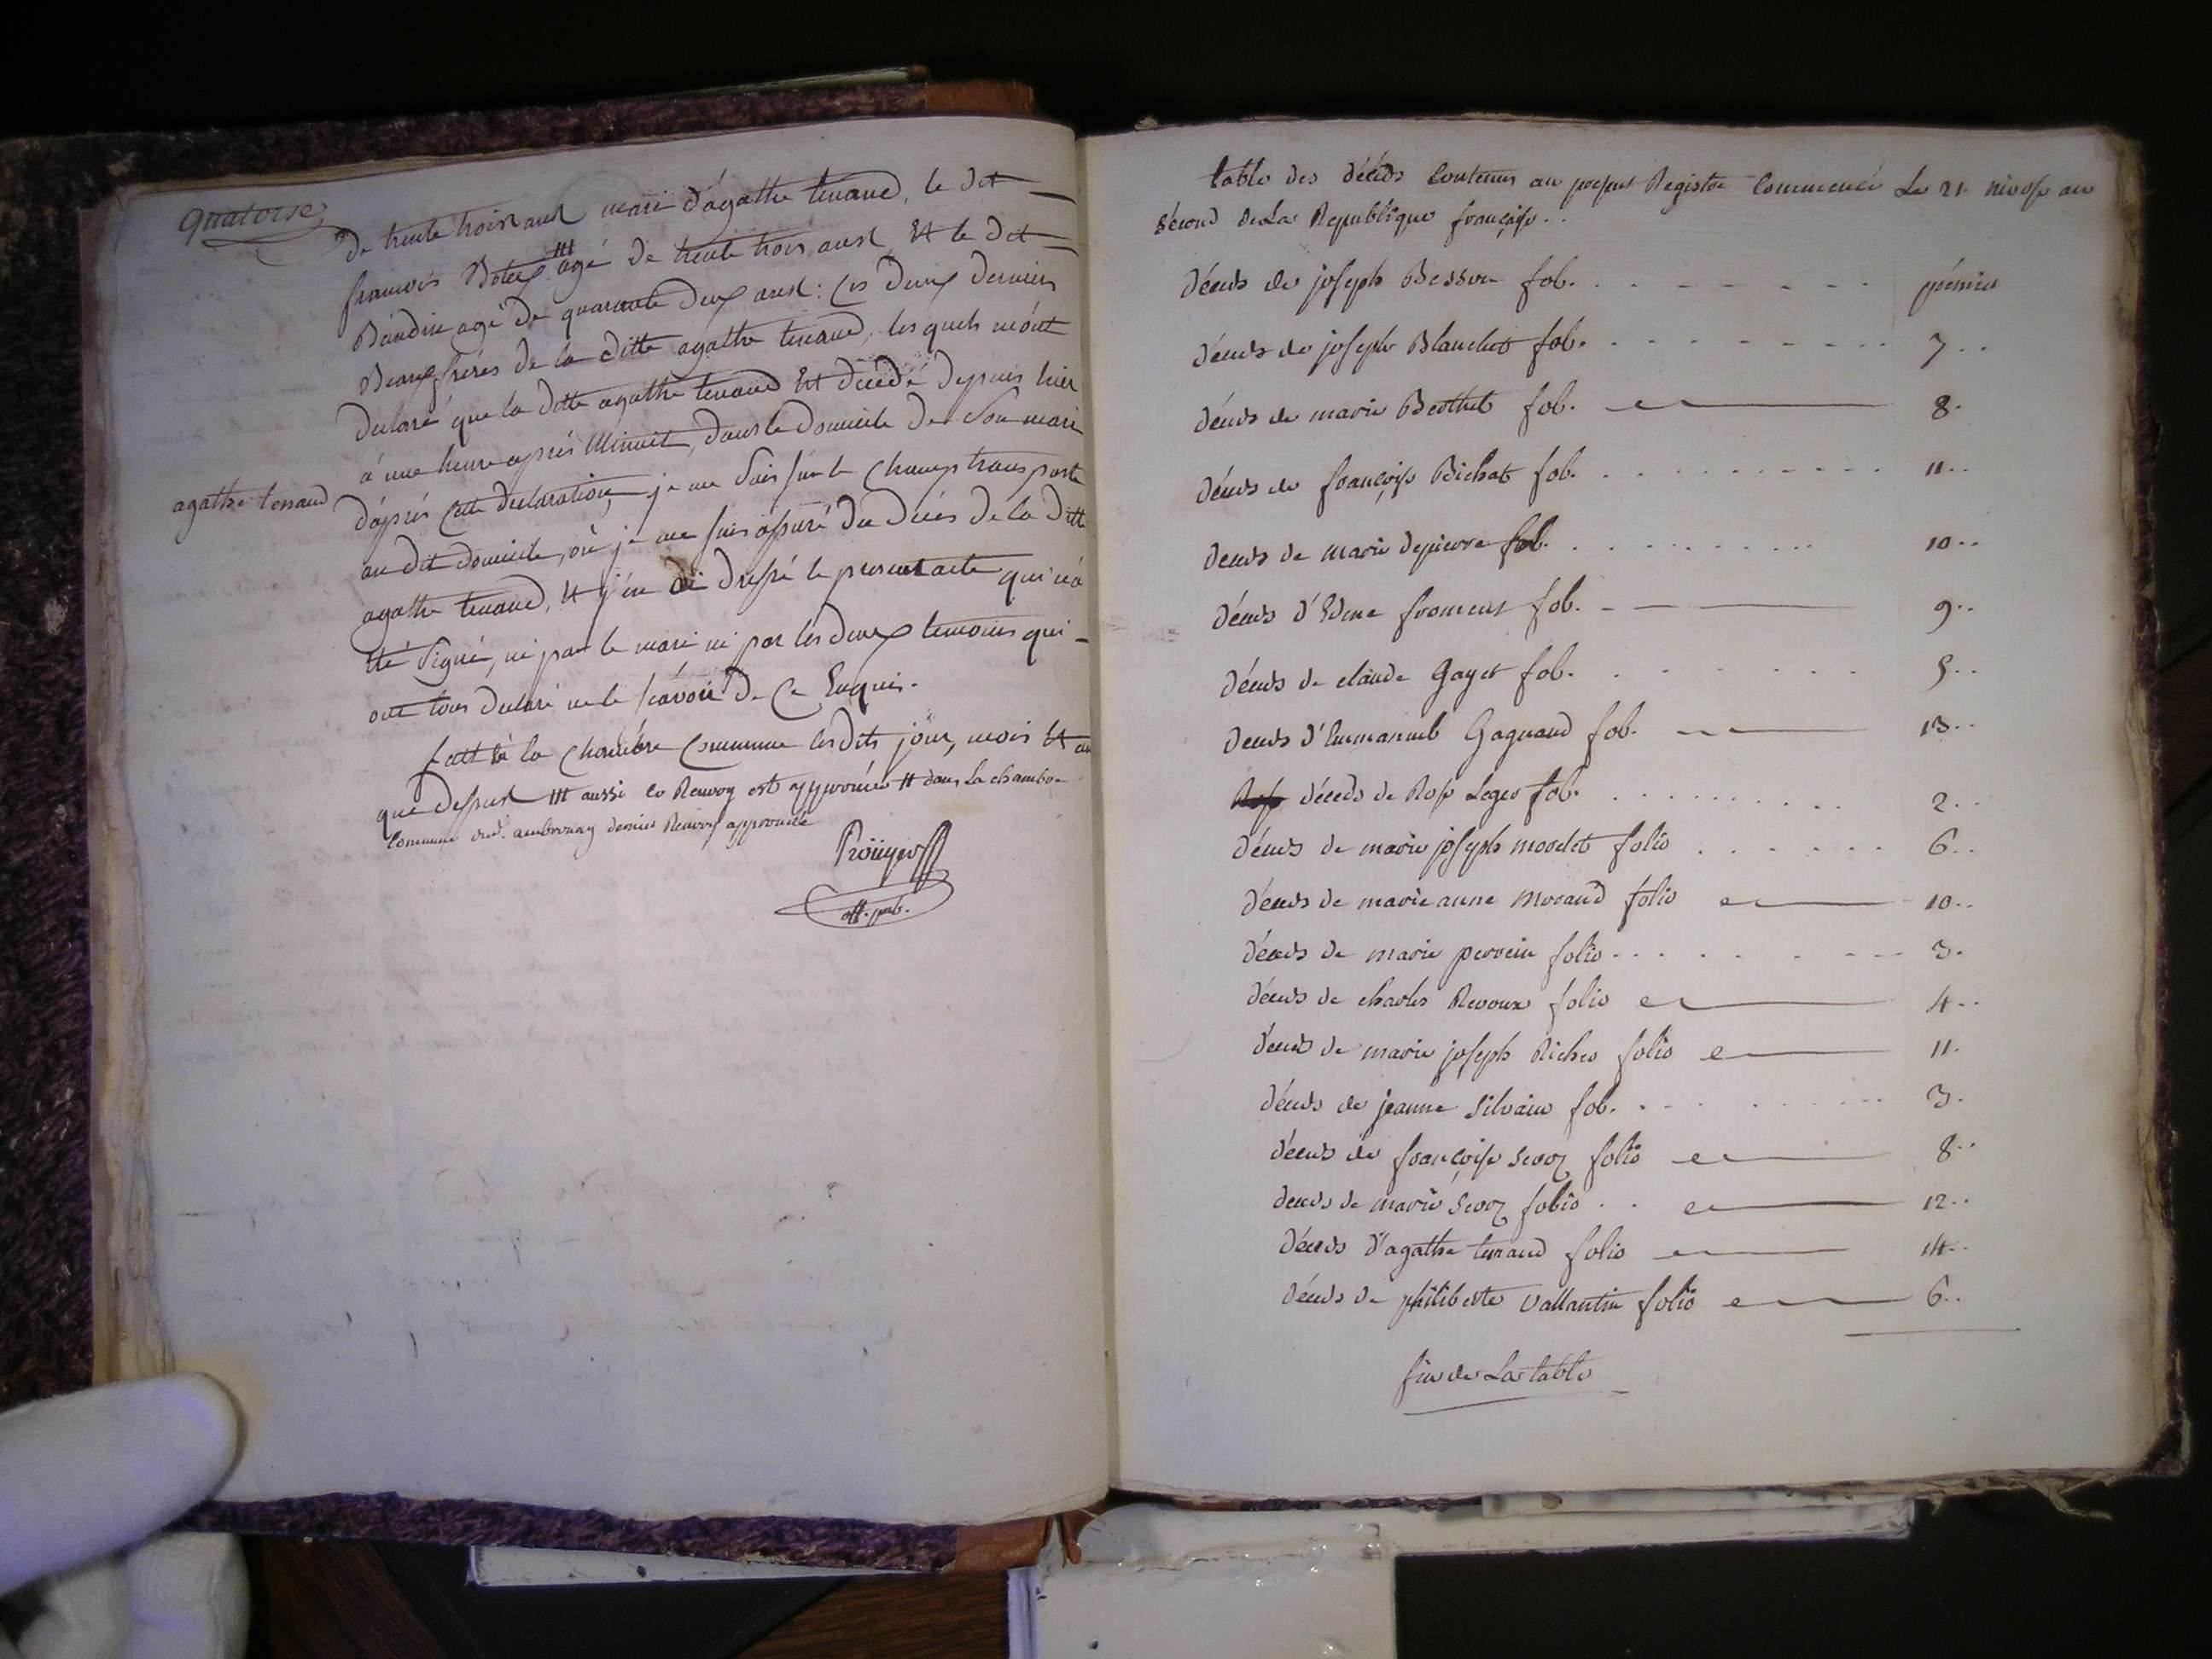 quatorse
de trente trois ans mari d'agathe tenand, le dit
francois agé de trente trois ans Et le dit
Baudin agé de quarante deux ans : Ces deux derniers
Beaux freres de la ditte agathe tenand, les quels m'ont
declaré que la ditte agathe tenand Est decedé depuis hier
à une heure après Minuit, dans le domicile de Son mari
agathe tenand
d'après cette declaration, je me suis sur le champ transporté
au dit domicile, où je me suis assuré du décès de la ditte
agathe tenand, Et j'en ai dressé le present acte qui n'a
été signé, ni par le mari ni par les deux temoins qui
ont tous declaré ne le sçavoir de ce Enquis.
fait à la chambre commune les dits jour, mois Et an
que dessus ttt aussi le Renvoy est approuvée tt dans la chambre
commune dud. ambronay dernier Renvoy approuvée
off. pub.
table des décéds contenus au présent Registre commencé Le 21 nivose an
second de La Republique françaisse..
décéds de joseph Besson fol. prémier
décéds de joseph Blanchet fol. 7..
décéds de marie Berthet fol. 8.
décéds de françoise Bichat fol. 11..
décéds de marie depierre fol. 10..
décéds d'Edme froment fol. 9..
décéds de claude Gayet fol. 5..
décéds d'Emmanuel Gagnaud fol. 13..
Rose décéds de Rose Leger fol. 2..
décéds de marie joseph mordet folio 6..
décéds de marie anne Morand folio 10..
décéds de marie perrin folio 3.
décéds de charles Revoux folio 4..
décéds de marie joseph Richer folio 11.
décéds de jeanne Silvain fol. 3.
décéds de françoise folio 8..
décéds de marie folio 12..
décéds d'agathe tenand folio 14..
décéds de philiberte vallantin folio 6..
fin de La table